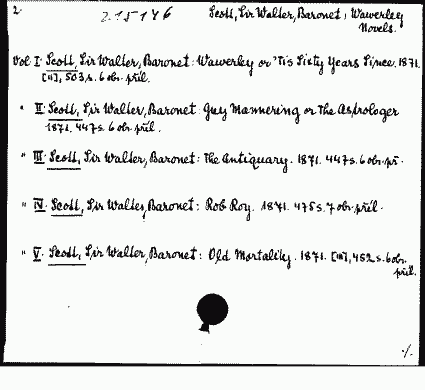 2. 2.15146 Scott, Sir Walter, Baronet: Wawerley
Novels.
Vol I. Scott, Sir Walter, Baronet: Waverley or 'Tis Sixty Years Since. 1871.
[III], 503 s. 6 obr. příl.
" II. Scott, Sir Walter, Baronet: Guy Mannering or The Astrologer
1871. 447 s. 6 obr. příl.
" III. Scott, Sir Walter, Baronet: The Antiquary. 1871. 447 s. 6 obr. př.
" IV. Scott, Sir Walter, Baronet: Rob Roy. 1871. 475 s. 7 obr. příl.
" V. Scott, Sir Walter, Baronet: Old Mortality. 1871. [III], 452 s. 6 obr.
příl.
./.